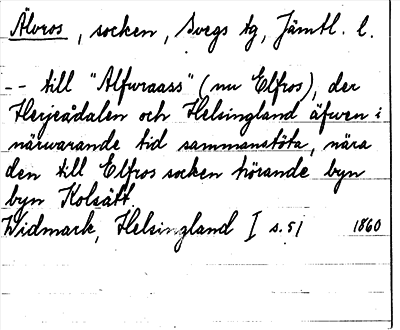 Älvros, socken, Svegs tg, Jämtl. l.
-- till "Alfwraass" (nu Elfros), der
Herjeådalen och Helsingland äfwen i
närwarande tid sammanstöta, nära
den till Elfros socken hörande byn
byn Kolsätt.
Widmark, Helsingland I s. 51 1860